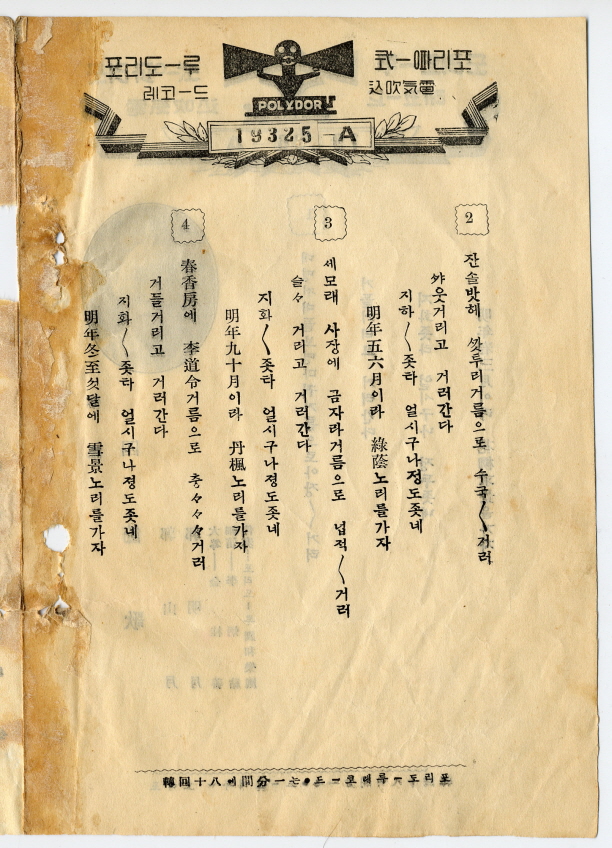 포리도―루
레코―드
포리따―式
電氣吹込
POLYDOR
19325-A
2
잔솔밧헤 쌋투리거름으로 수국〱거러
꺄웃거리고 거러간다
지하〱좃타 얼시구나졍도좃네
明年五六月이라 綠陰노리를가자
3
세모래 사장에 금자라거름으로 넙적〱거러
슬々 거리고 거러간다
지화〱좃타 얼시구나졍도좃네
明年九十月이라 丹楓노리를가자
4
春香房에 李道令거름으로 충々々々거러
거들거리고 거러간다
지화〱좃타 얼시구나졍도좃네
明年冬至섯달에 雪景노리를가자
포리도―루레코―드•는一分間에八十回轉